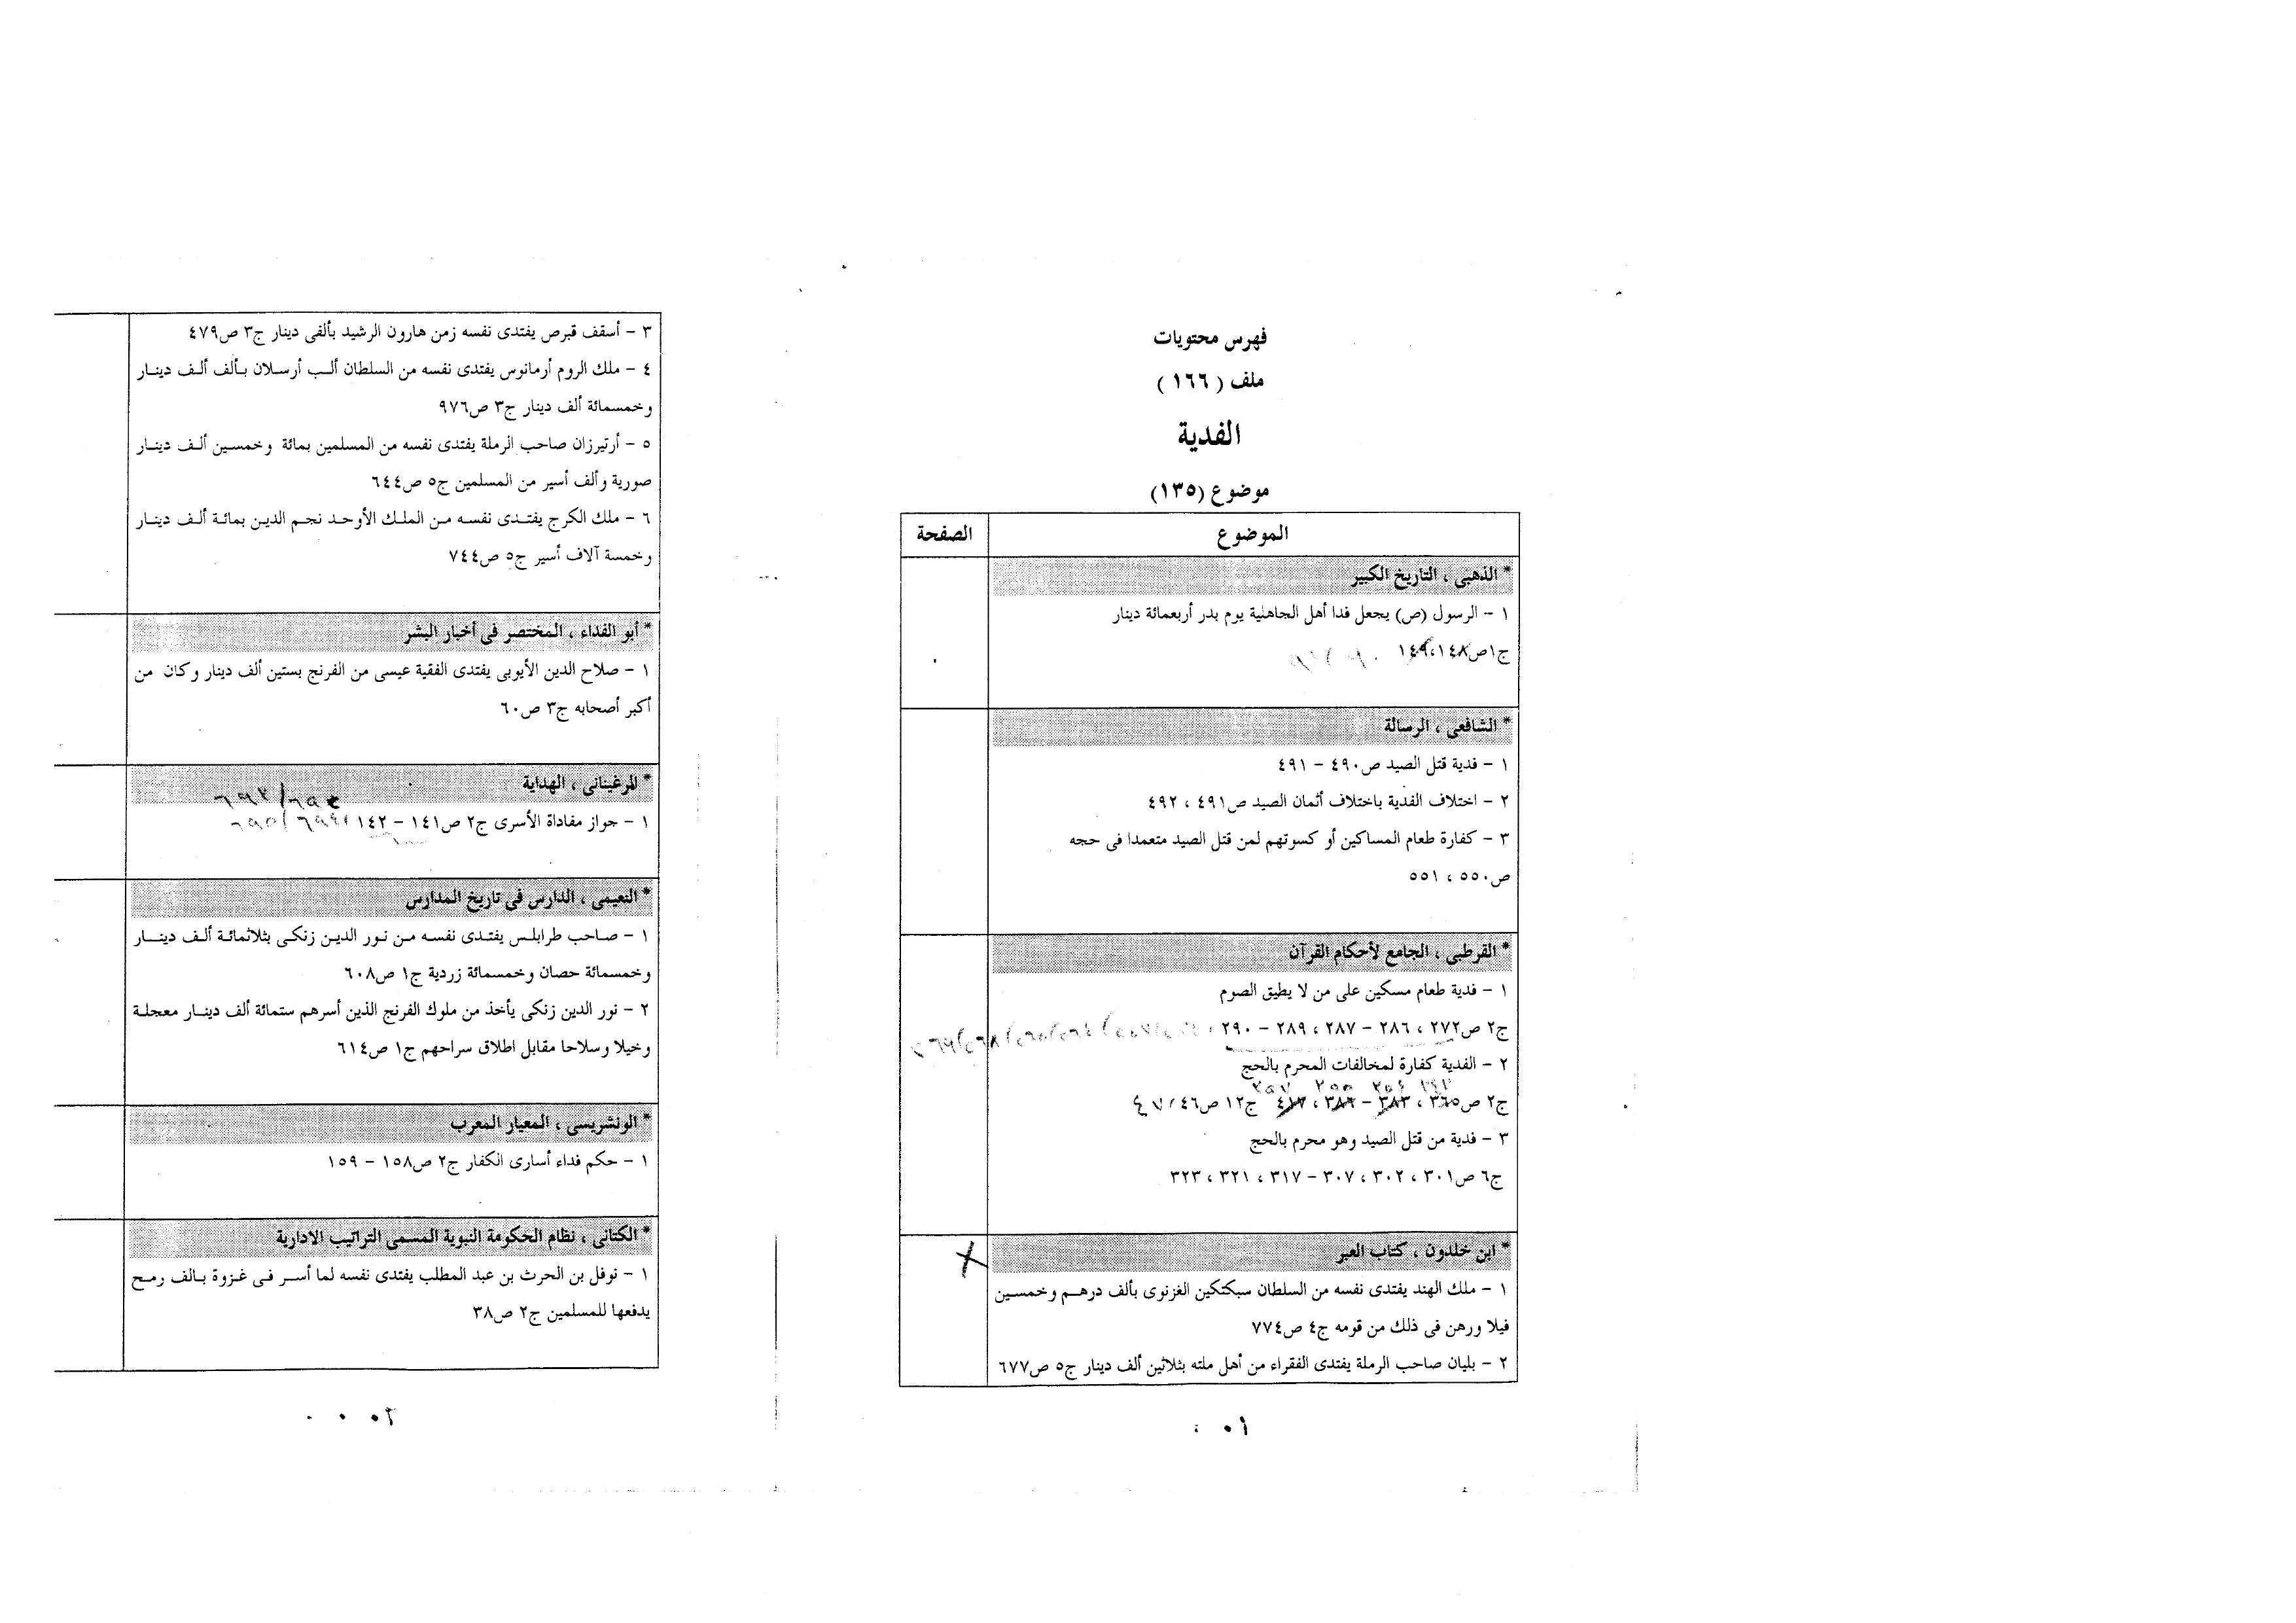 فهرس محتويات
ملف ( ١٦٦ )
الفدية
موضوع (١٣٥)
الموضوع
الصفحة
* الذهبى ، التاريخ الكبير
١ – الرسول (ص) يجعل فدا أهل الجاهلية يوم بدر أربعمائة دينار
ج١ص١٤٨،١٤٩
* الشافعى ، الرسالة
١ – فدية قتل الصيد ص٤٩٠ – ٤٩١
٢ – اختلاف الفدية باختلاف أثمان الصيد ص٤٩١ ، ٤٩٢
٣ – كفارة طعام المساكين أو كسوتهم لمن قتل الصيد متعمدا فى حجه
ص٥٥٠ ، ٥٥١
* القرطبى ، الجامع لأحكام القرآن
١ – فدية طعام مسكين على من لا يطيق الصوم
ج٢ ص٢٧٢ ، ٢٨٦ – ٢٨٧ ، ٢٨٩ – ٢٩٠ ،
٢ – الفدية كفارة لمخالفات المحرم بالحج
٢٥٤ ٢٥٥ ٢٥٧
ج٢ ص٣٦٥ ، ٣٨٣ – ٣٨٦ ، ٤١٧ ج١٢ ص٤٦، ٤٧
٣ – فدية من قتل الصيد وهو محرم بالحج
ج٦ ص٣٠١ ، ٣٠٢ ، ٣٠٧ – ٣١٧ ، ٣٢١ ، ٣٢٣
* ابن خلدون ، كتاب العبر
١ – ملك الهند يفتدى نفسه من السلطان سبكتكين الغزنوى بألف درهم وخمسين
فيلا ورهن فى ذلك من قومه ج٤ ص٧٧٤
٢ – بليان صاحب الرملة يفتدى الفقراء من أهل ملته بثلاثين ألف دينار ج٥ ص٦٧٧
٥١
٣ – أسقف قبرص يفتدى نفسه زمن هارون الرشيد بألفى دينار ج٣ ص٤٧٩
٤ – ملك الروم أرمانوس يفتدى نفسه من السلطان ألب أرسلان بألف ألف دينار
وخمسمائة ألف دينار ج٣ ص٩٧٦
٥ – أرتيرزان صاحب الرملة يفتدى نفسه من المسلمين بمائة وخمسين ألف دينار
صورية وألف أسير من المسلمين ج٥ ص٦٤٤
٦ – ملك الكرج يفتدى نفسه من الملك الأوحد نجم الدين بمائة ألف دينار
وخمسة آلاف أسير ج٥ ص٧٤٤
* أبو الفداء ، المختصر فى أخبار البشر
١ – صلاح الدين الأيوبى يفتدى الفقية عيسى من الفرنج بستين ألف دينار وكان من
أكبر أصحابه ج٣ ص٦٠
* المرغينانى ، الهداية
١ – جواز مفاداة الأسرى ج٢ ص١٤١ – ١٤٢
* النعيمى ، الدارس فى تاريخ المدارس
١ – صاحب طرابلس يفتدى نفسه من نور الدين زنكى بثلاثمائة ألف دينار
وخمسمائة حصان وخمسمائة زردية ج١ ص٦٠٨
٢ – نور الدين زنكى يأخذ من ملوك الفرنج الذين أسرهم ستمائة ألف دينار معجلة
وخيلا وسلاحا مقابل اطلاق سراحهم ج١ ص٦١٤
* الونشريسى ، المعيار المعرب
١ – حكم فداء أسارى الكفار ج٢ ص١٥٨ – ١٥٩
* الكتانى ، نظام الحكومة النبوية المسمى التراتيب الادارية
١ – نوفل بن الحرث بن عبد المطلب يفتدى نفسه لما أسر فى غزوة بالف رمح
يدفعها للمسلمين ج٢ ص٣٨